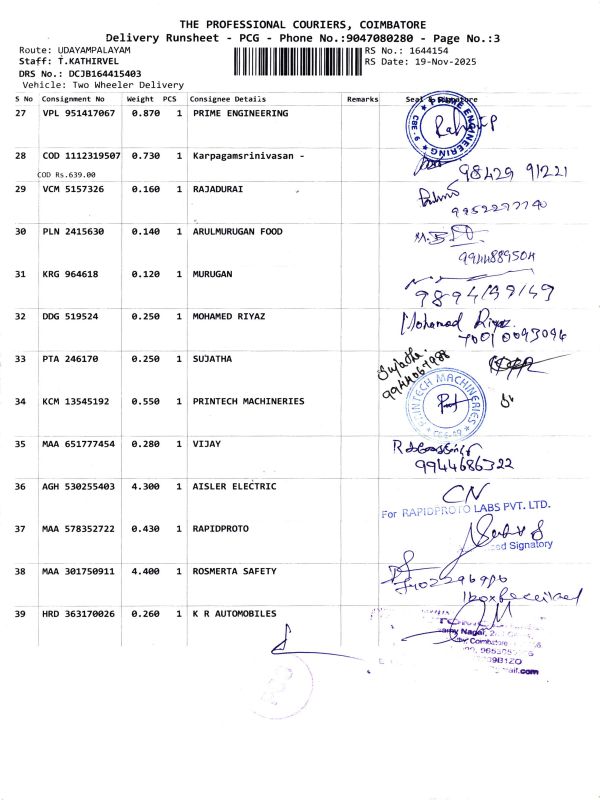 THE PROFESSIONAL COURIERS, COIMBATORE
Delivery Runsheet - PCG - Phone No.:9047080280 - Page No.:3
Route: UDAYAMPALAYAM RS No.: 1644154
Staff: T.KATHIRVEL RS Date: 19-Nov-2025
DRS No.: DCJB164415403
Vehicle: Two Wheeler Delivery
S No Consignment No Weight PCS Consignee Details Remarks Seal & Signature
27 VPL 951417067 0.870 1 PRIME ENGINEERING
PRIME ENGINEERING CBE-6
28 COD 1112319507 0.730 1 Karpagamsrinivasan -
COD Rs.639.00 98429 91221
29 VCM 5157326 0.160 1 RAJADURAI
9952297740
30 PLN 2415630 0.140 1 ARULMURUGAN FOOD
9944889504
31 KRG 964618 0.120 1 MURUGAN
9894199149
32 DDG 519524 0.250 1 MOHAMED RIYAZ Mohamed Riyaz
70010093094
33 PTA 246170 0.250 1 SUJATHA Sujatha
9944061988
34 KCM 13545192 0.550 1 PRINTECH MACHINERIES PRINTECH MACHINERIES
35 MAA 651777454 0.280 1 VIJAY
9944686322
36 AGH 530255403 4.300 1 AISLER ELECTRIC CN
For RAPIDPROTO LABS PVT. LTD.
37 MAA 578352722 0.430 1 RAPIDPROTO
ed Signatory
38 MAA 301750911 4.400 1 ROSMERTA SAFETY
1 box Received
39 HRD 363170026 0.260 1 K R AUTOMOBILES
Nagar,
Coimbatore